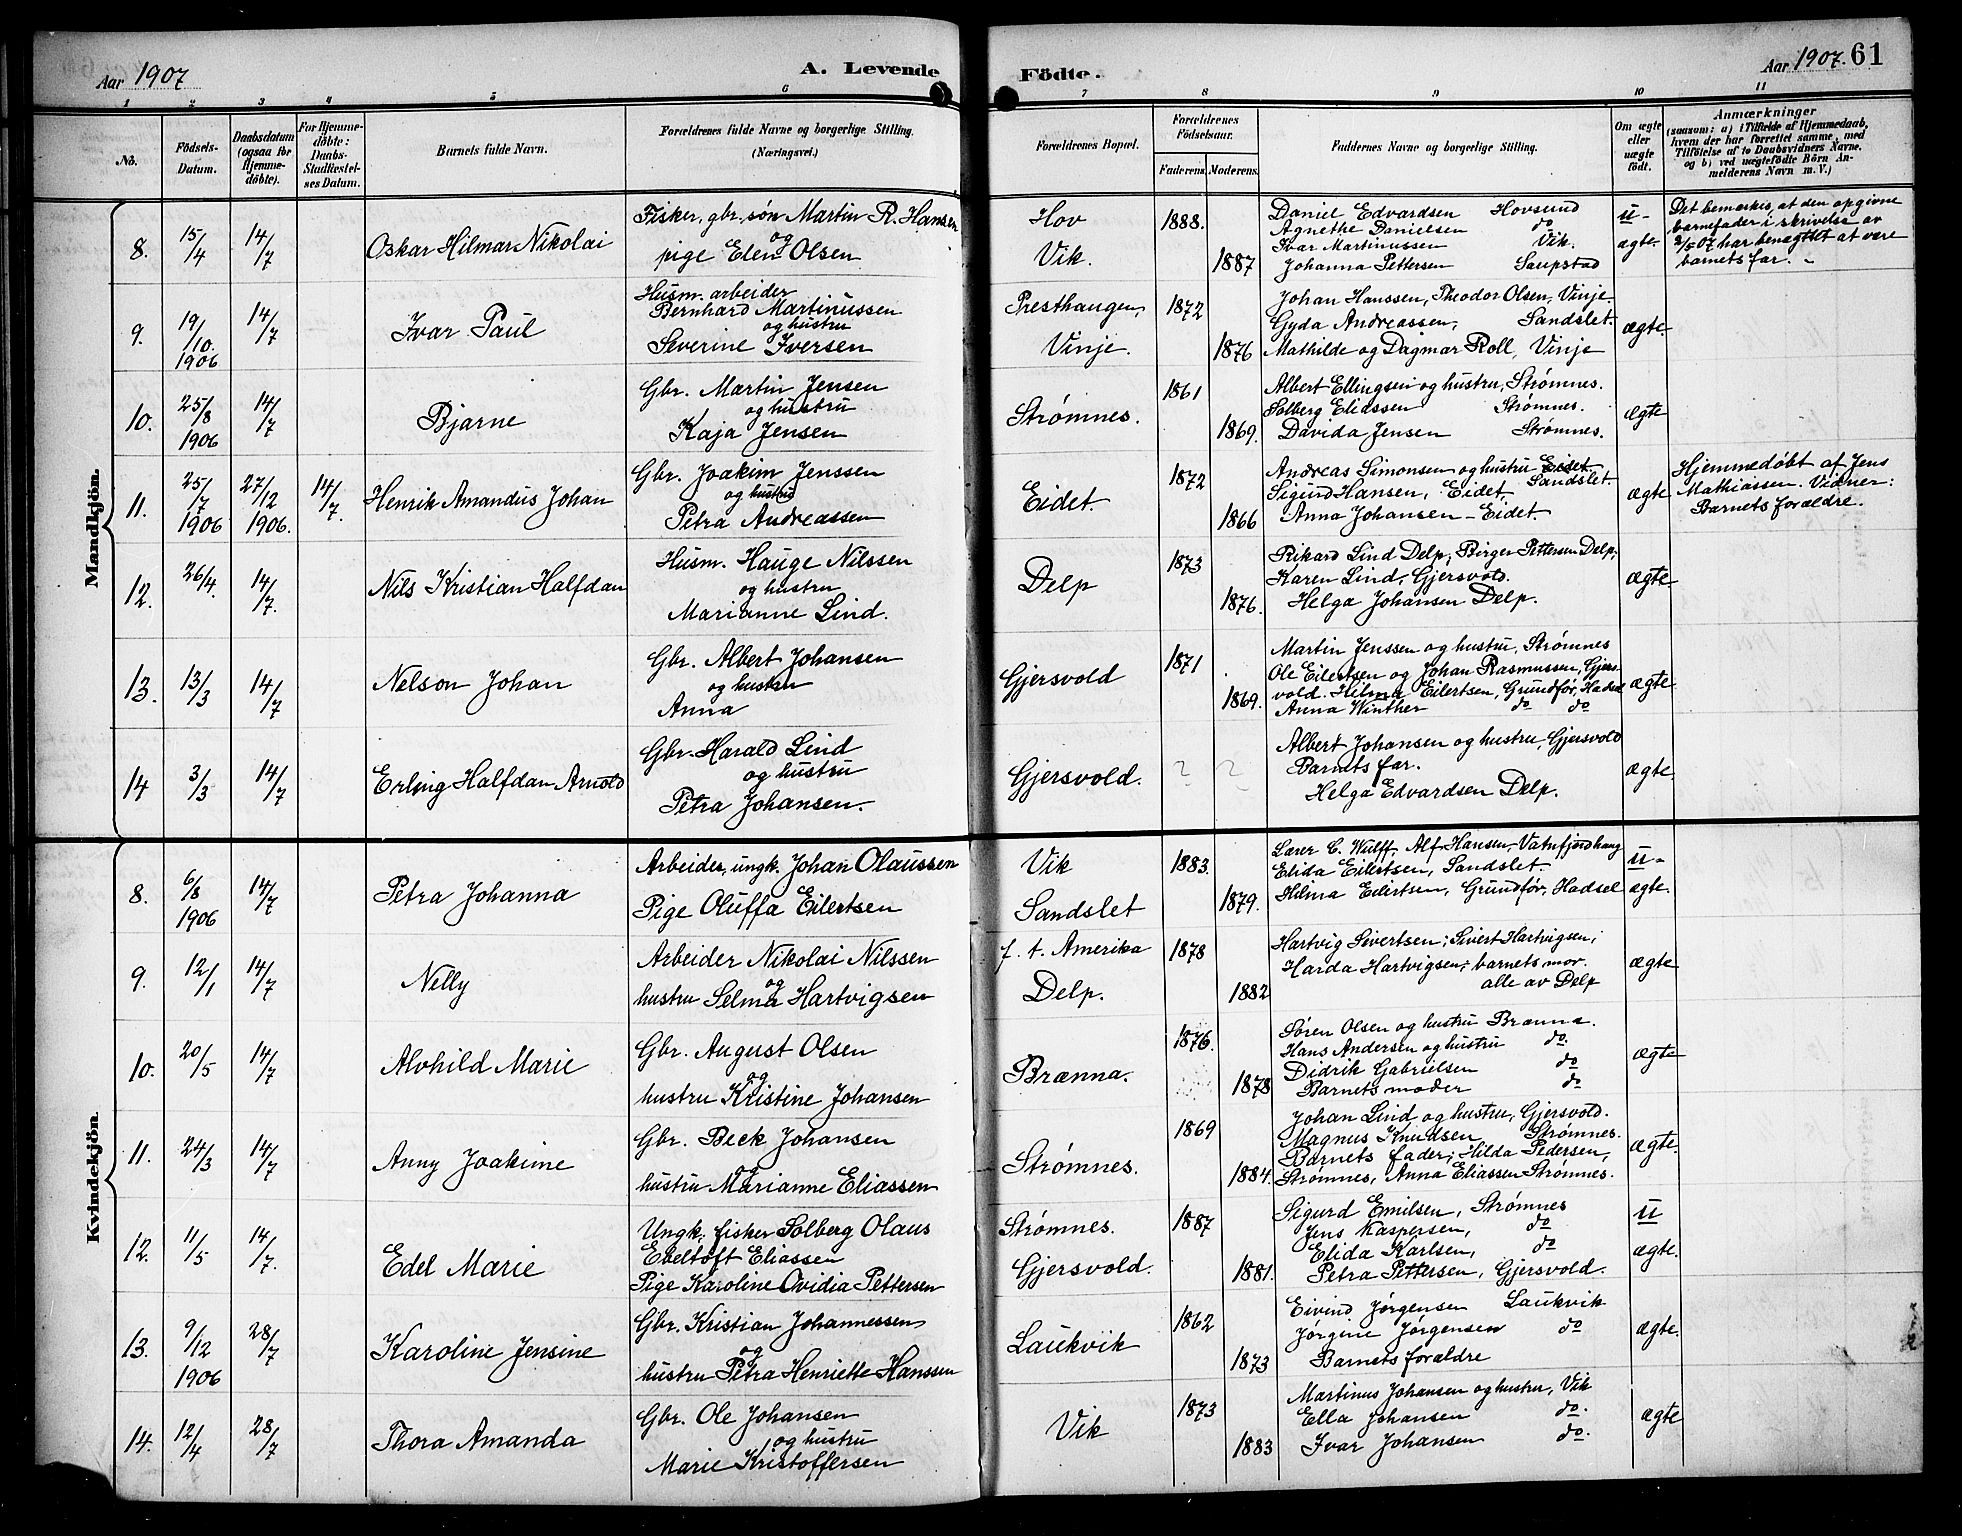 Aar 1907
A. Levende Födte.
Aar 1907. 61
1 2 3 4 5 6 7 8 9 10 11
No.
Födsels-Datum.
Daabsdatum (ogsaa for Hjemmedöbte).
For Hjemmedöbte: Daabs-Stadfæstelses Datum.
Barnets fulde Navn.
Forældrenes fulde Navne og borgerlige Stilling.
(Næringsvei.)
Forældrenes Bopæl.
Forældrenes Födselsaar.
Faderens. Moderens.
Faddernes Navne og borgerlige Stilling.
Om ægte eller uægte födt.
Anmærkninger
(saasom: a) i Tilfælde af Hjemmedaab, hvem der har forrettet samme, med Tilföielse af to Daabsvidners Navne. og b) ved uægtefödte Börn Anmelderens Navn m. V.)
Mandkjön.
8. 15/4 14/7 Oskar Hilmar Nikolai
Fisker, gbr. søn Martin R. Hansen
og
pige Elen Olsen
Hov
Vik.
1888.
1887
Daniel Edvardsen Hovsund
Agnethe Danielsen do
Ivar Martinussen Vik.
Johanna Pettersen Saupstad
u-
ægte.
Det bemerkes, at den opgivne
barnefader i skrivelse av
2/5 07 har benægtet at være
barnets far. -
9. 19/10. 1906 14/7 Ivar Paul
Husm. arbeider
Bernhard Martinussen
og hustru
Severine Iversen
Presthaugen,
Vinje.
1872
1876
Johan Hanssen, Theodor Olsen, Vinje.
Gyda Andreassen, Sandslet.
Mathilde og Dagmar Roll, Vinje
ægte.
10. 25/8 1906 14/7 Bjarne
Gbr. Martin Jensen
og hustru
Kaja Jensen
Strømnes.
1861
1869.
Albert Ellingsen og hustru, Strømnes.
Solberg Eliassen Strømnes.
Davida Jensen Strømnes.
ægte
11. 25/7 1906 27/12 1906. 14/7. Henrik Amandus Johan
Gbr. Joakim Jenssen
og hustru
Petra Andreassen
Eidet.
1872
1866
Andreas Simonsen og hustru Eidet
Sandslet.
Sigurd Hansen, Eidet,
Anna Johansen - Eidet.
ægte
Hjemmedøbt af Jens
Mathiassen. Vidner:
Barnets forældre.
12. 26/4. 14/7. Nils Kristian Halfdan
Husm. Hauge Nilssen
og hustru
Marianne Lind.
Delp
1873
1876.
Rikard Lind Delp, Birger Pettersen Delp;
Karen Lind, Gjersvold.
Helga Johansen Delp.
ægte.
13. 13/3 14/7 Nelson Johan
Gbr. Albert Johansen
og hustru
Anna
Gjersvold
1871
1869.
Martin Jenssen og hustru, Strømnes
Ole Eilertsen og Johan Rasmussen, Gjers-
vold. Hilma Eilertsen, Grundfør, Hadsel
Anna Winther do do
ægte.
14 3/3 14/7 Erling Halfdan Arnold
Gbr. Harald Lind
og hustru
Petra Johansen.
Gjersvold.
? ?
Albert Johansen og hustru, Gjersvold
Barnets far.
Helga Edvardsen Delp.
ægte.
Kvindekjön.
8. 6/8 1906 14/7 Petra Johanna
Arbeider, ungk. Johan Olaussen
Pige Oluffa Eilertsen
Vik
Sandslet
1883.
1879.
Lærer C. Wulff. Alf Hansen, Vatnfjordhaug
Elida Eilertsen, Sandslet.
Hilma Eilertsen, Grundfør, Hadsel
u-
ægte.
9. 12/1 14/7 Nelly
Arbeider Nikolai Nilssen
og
hustru Selma Hartvigsen
f. t. Amerika
Delp.
1878
1882
Hartvig Sivertsen; Sivert Hartvigsen;
Harda Hartvigsen; barnets mor.
alle av Delp
ægte
10. 20/5 14/7 Alvhild Marie
Gbr. August Olsen
og
hustru Kristine Johansen
Brænna.
1876.
1878
Søren Olsen og hustru Brænna.
Hans Andersen og hustru do.
Didrik Gabrielsen do
Barnets moder do
ægte
11. 24/3 14/7 Anny Joakime
Gbr. Beck Johansen
og
hustru Marianne Eliassen
Strømnes.
1869
1884.
Johan Lind og hustru, Gjersvold.
Magnus Knudsen Strømnes.
Barnets fader; Hilda Pedersen,
Strømnes, Anna Eliassen Strømnes.
ægte.
12. 11/5 14/7. Edel Marie
Ungk. fisker Solberg Olaus
Ebeltoft Eliassen
Pige Karoline Ovidia Pettersen
Strømnes.
Gjersvold.
1887
1881.
Sigurd Emilsen, Strømnes
Jens Kaspersen, do
Elida Karlsen, do
Petra Pettersen, Gjersvold.
u
ægte.
13. 9/12 1906 28/7 Karoline Jensine
Gbr. Kristian Johannessen
og
hustru Petra Henriette Hanssen
Laukvik
1862
1873
Eivind Jørgensen Laukvik
Jørgine Jørgensen do
Barnets forældre
ægte.
14. 12/4 28/7 Thora Amanda
Gbr. Ole Johansen
og hustru
Marie Kristoffersen
Vik
1873
1883
Martinus Johansen og hustru, Vik
Ella Johansen do.
Ivar Johansen do.
ægte